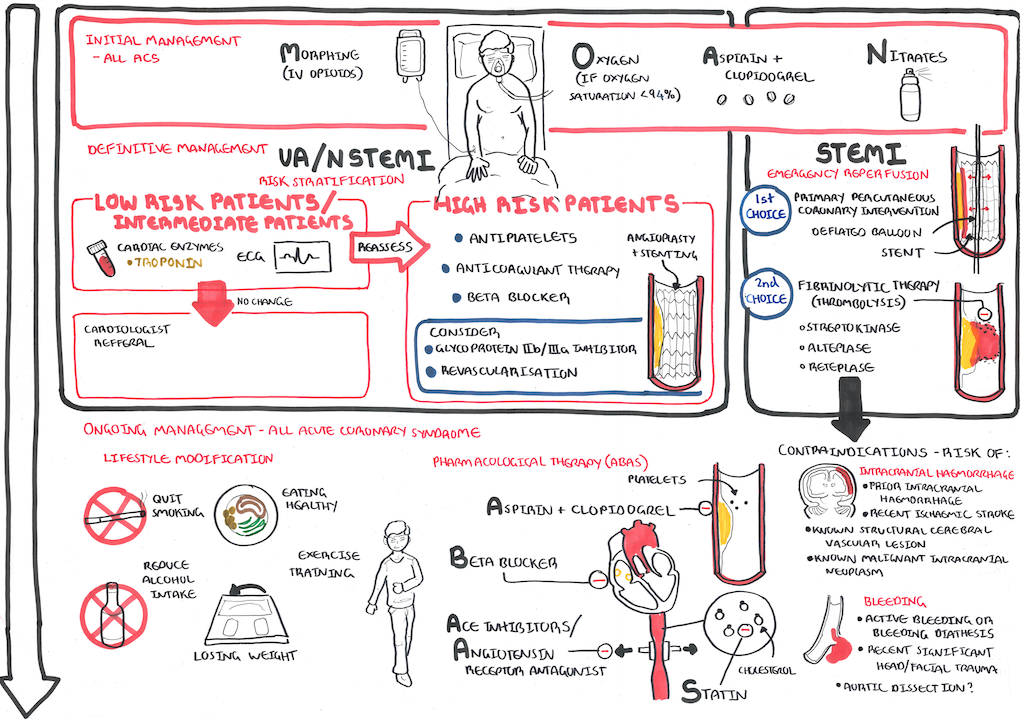 INITIAL MANAGEMENT
- ALL ACS
MORPHINE
(IV OPIOIDS)
OXYGEN
(IF OXYGEN
SATURATION <94%)
ASPIRIN +
CLOPIDOGREL
NITRATES
DEFINITIVE MANAGEMENT
UA/NSTEMI
RISK STRATIFICATION
LOW RISK PATIENTS/
INTERMEDIATE PATIENTS
CARDIAC ENZYMES
• TROPONIN
ECG
REASSESS
NO CHANGE
CARDIOLOGIST
REFFERAL
HIGH RISK PATIENTS
• ANTIPLATELETS
• ANTICOAGULANT THERAPY
• BETA BLOCKER
ANGIOPLASTY
+ STENTING
CONSIDER
• GLYCOPROTEIN IIb/IIIa INHIBITOR
• REVASCULARISATION
STEMI
EMERGENCY REPERFUSION
1st
CHOICE
PRIMARY PERCUTANEOUS
CORONARY INTERVENTION
DEFLATED BALLOON
STENT
2nd
CHOICE
FIBRINOLYTIC THERAPY
(THROMBOLYSIS)
o STREPTOKINASE
o ALTEPLASE
o RETEPLASE
CONTRAINDICATIONS - RISK OF:
INTRACRANIAL HAEMORRHAGE
• PRIOR INTRACRANIAL
HAEMORRHAGE
• RECENT ISCHAEMIC STROKE
• KNOWN STRUCTURAL CEREBRAL
VASCULAR LESION
• KNOWN MALIGNANT INTRACRANIAL
NEUPLASM
BLEEDING
• ACTIVE BLEEDING OR
BLEEDING DIATHESIS
• RECENT SIGNIFICANT
HEAD/FACIAL TRAUMA
• AORTIC DISSECTION?
ONGOING MANAGEMENT - ALL ACUTE CORONARY SYNDROME
LIFESTYLE MODIFICATION
QUIT
SMOKING
EATING
HEALTHY
REDUCE
ALCOHOL
INTAKE
EXERCISE
TRAINING
LOSING WEIGHT
PHARMACOLOGICAL THERAPY (ABAS)
PLATELETS
ASPIRIN + CLOPIDOGREL
BETA BLOCKER
ACE INHIBITORS/
ANGIOTENSIN
RECEPTOR ANTAGONIST
STATIN
CHOLESTEROL